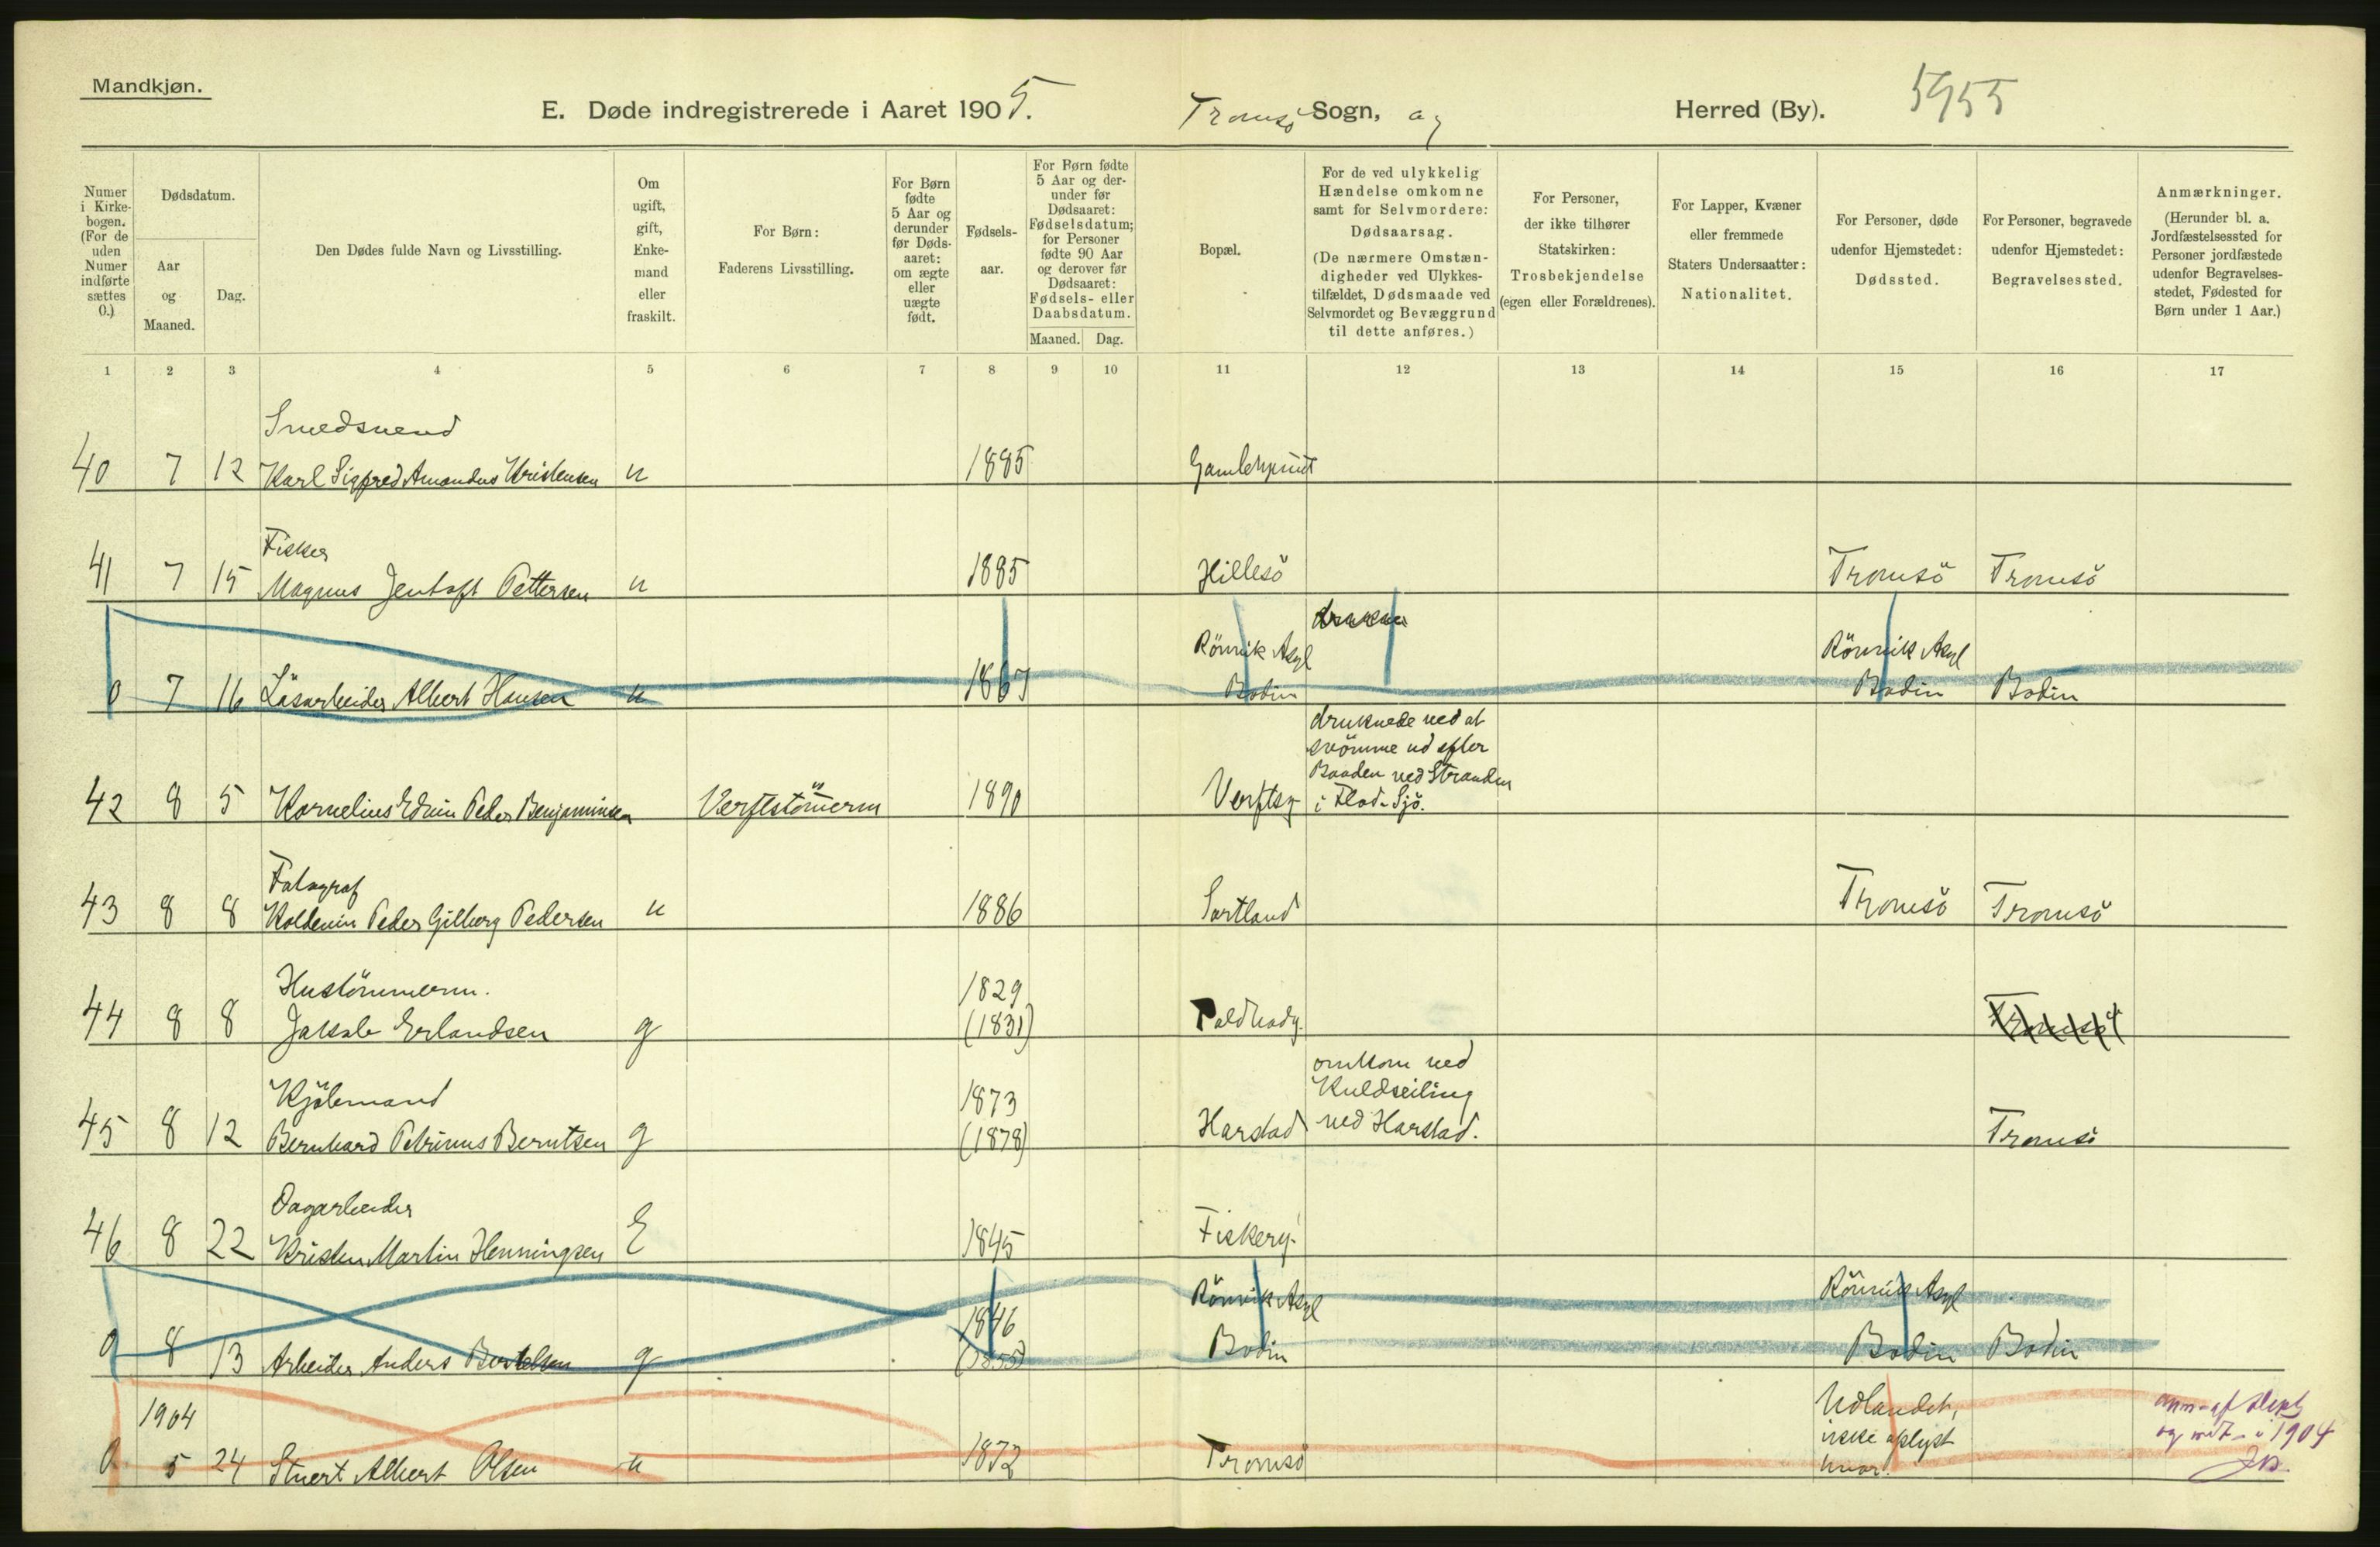 Mandkjøn.
E. Døde indregistrerede i Aaret 1905.
Tromsö Sogn, og
Herred (By).
5955
Numer i Kirke-bogen. (For de uden Numer indførte sættes 0.)
Dødsdatum.
Aar og Maaned.
Dag.
Den Dødes fulde Navn og Livsstilling.
Om ugift, gift, Enke-mand eller fraskilt.
For Børn: Faderens Livsstilling.
For Børn fødte 5 Aar og derunder før Døds-aaret: om ægte eller uægte født.
Fødsels-aar.
For Børn fødte 5 Aar og der-under før Dødsaaret: Fødselsdatum; for Personer fødte 90 Aar og derover før Dødsaaret: Fødsels- eller Daabsdatum.
Maaned. Dag.
Bopæl.
For de ved ulykkelig Hændelse omkomne samt for Selvmordere: Dødsaarsag.
(De nærmere Omstæn-digheder ved Ulykkes-tilfældet, Dødsmaade ved Selvmordet og Bevæggrund til dette anføres.)
For Personer, der ikke tilhører Statskirken: Trosbekjendelse (egen eller Forældrenes).
For Lapper, Kvæner eller fremmede Staters Undersaatter: Nationalitet.
For Personer, døde udenfor Hjemstedet: Dødssted.
For Personer, begravede udenfor Hjemstedet: Begravelsessted.
Anmærkninger.
(Herunder bl. a. Jordfæstelsessted for Personer jordfæstede udenfor Begravelses-stedet, Fødested for Børn under 1 Aar.)
1 2 3 4 5 6 7 8 9 10 11 12 13 14 15 16 17
Smedsvend
40 7 12 Karl Sigfred Amandus Kristensen u 1885
Fisker
41 7 15 Magnus Jentoft Pettersen u 1885 Hillesö Tromsö Tromsö
Rönvik Asyl Rönvik Asyl
0 7 16 Lösarbeider Albert Hansen u 1867 Bodin Bodin Bodin
druknede ved at
svömme ud efter
Baaden ved Stranden
42 8 5 Kornelius Edvin Peder Benjaminsen 1890 Verftsg i Flod-Sjö.
Fotograf
43 8 8 Peder Gilberg Pedersen u 1886 Sortland Tromsö Tromsö
Hustömmerm. 1829
44 8 8 Jakob Erlandsen g (1831) Tromsö
omkom ved
Kjöbmand 1873 Kuldseiling
45 8 12 Bernhard Petrinus Berntsen g (1878) Harstad ved Harstad. Tromsö
Dagarbeider
46 8 22 Kristen Martin Henningsen E 1845 Fiskerg.
1846 Rönvik Asyl Rönvik Asyl
0 8 13 Arbeider Anders Bertelsen g (1855) Bodin Bodin Bodin
1904 Udlandet,
ikke oplyst og i 1904
0 5 24 Stuert Albert Olsen u 1872 Tromsö hvor.